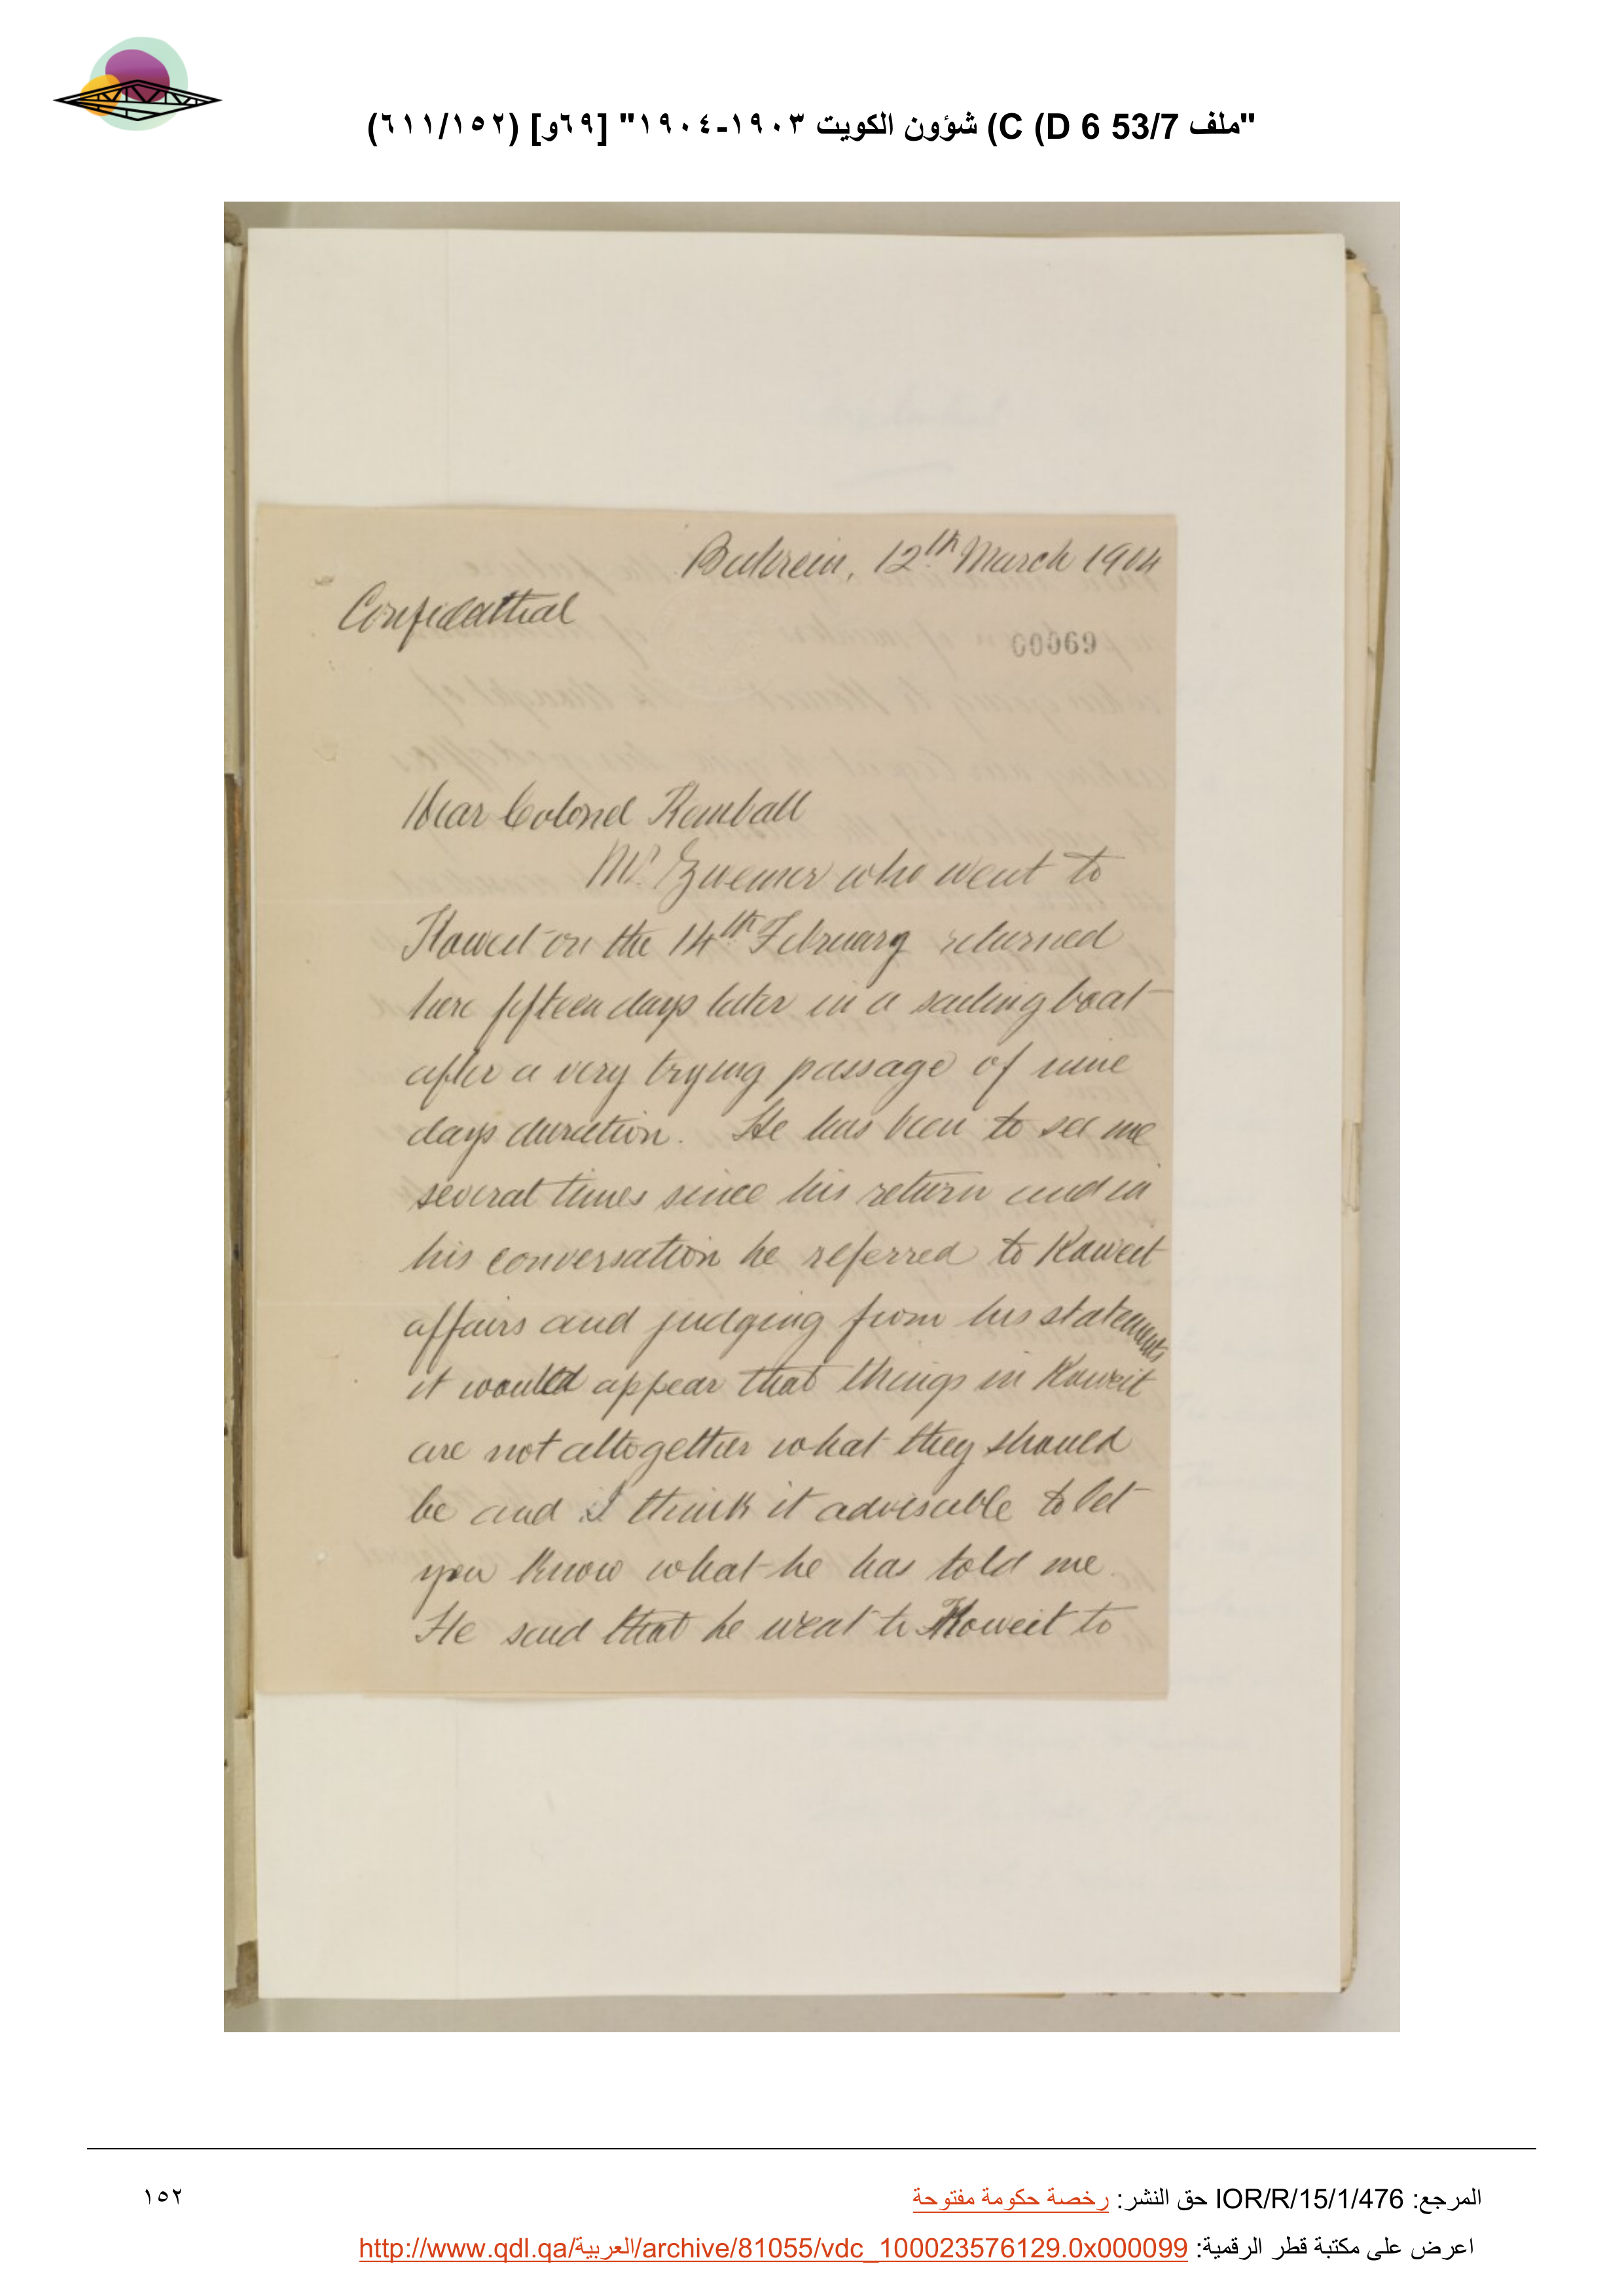 "ملف 53/7 C (D 6) شؤون الكويت ١٩٠٣-١٩٠٤" [٦٩و] (٦١١/١٥٢)
Bahrein, 12th March 1904
Confidential
00069
Dear Colonel Kemball
Mr. Zwemer who went to
Koweit on the 14th February returned
here fifteen days later in a sailing boat
after a very trying passage of nine
days duration. He has been to see me
several times since his return and in
his conversation he referred to Koweit
affairs and judging from his statements
it would appear that things in Koweit
are not altogether what they should
be and I think it advisable to let
you know what he has told me.
He said that he went to Koweit to
المرجع: IOR/R/15/1/476 حق النشر: رخصة حكومة مفتوحة
١٥٢
اعرض على مكتبة قطر الرقمية: http://www.qdl.qa/العربية/archive/81055/vdc_100023576129.0x000099